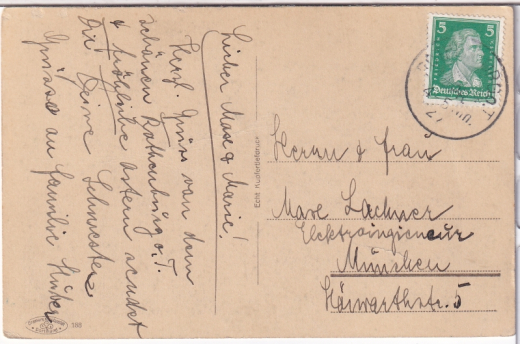 Lieber Max & Marie!
Herzl. Grüße von dem
schönen Rothenburg o.T.
& fröhliche Ostern sendet
Dir Deine Schwester
Grüsse an Familie Huber
Echt Kupfertiefdruck
198
5 5
FRIEDRICH
Deutsches Reich
27
Herrn & Frau
Max Lachner
Elektroingieneur
München
Hörwarthstr. 5